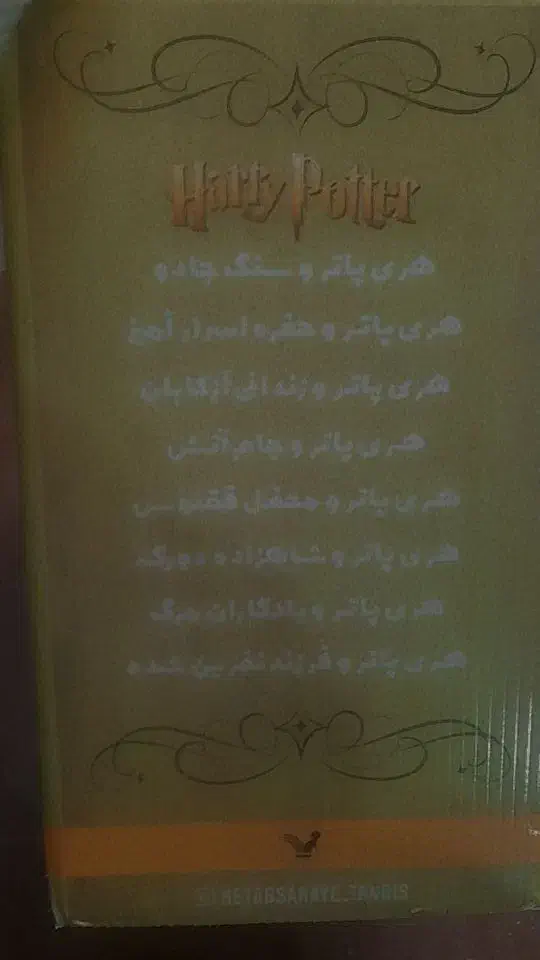 Harry Potter
هری پاتر و سنگ جادو
هری پاتر و حفره اسرار آمیز
هری پاتر و زندانی آزکابان
هری پاتر و جام آتش
هری پاتر و محفل ققنوس
هری پاتر و شاهزاده دورگه
هری پاتر و یادگاران مرگ
هری پاتر و فرزند نفرین شده
KETABSARAYE_TANDIS